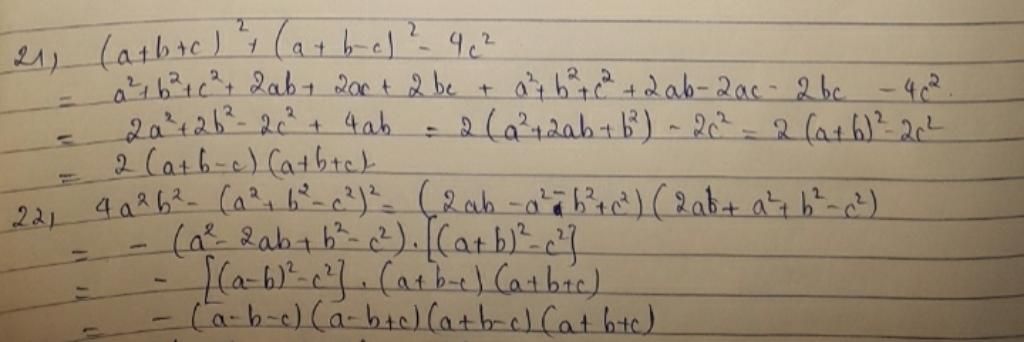 21) (a+b+c)² + (a+b-c)² - 4c²
= a²+b²+c²+2ab+2ac+2bc + a²+b²+c²+2ab-2ac-2bc -4c².
= 2a²+2b²-2c²+4ab = 2(a²+2ab+b²)-2c² = 2(a+b)²-2c²
= 2(a+b-c)(a+b+c)
22) 4a²b²-(a²+b²-c²)² = (2ab-a²-b²+c²)(2ab+a²+b²-c²)
= -(a²-2ab+b²-c²).[(a+b)²-c²]
= -[(a-b)²-c²].(a+b-c)(a+b+c)
= -(a-b-c)(a-b+c)(a+b-c)(a+b+c)